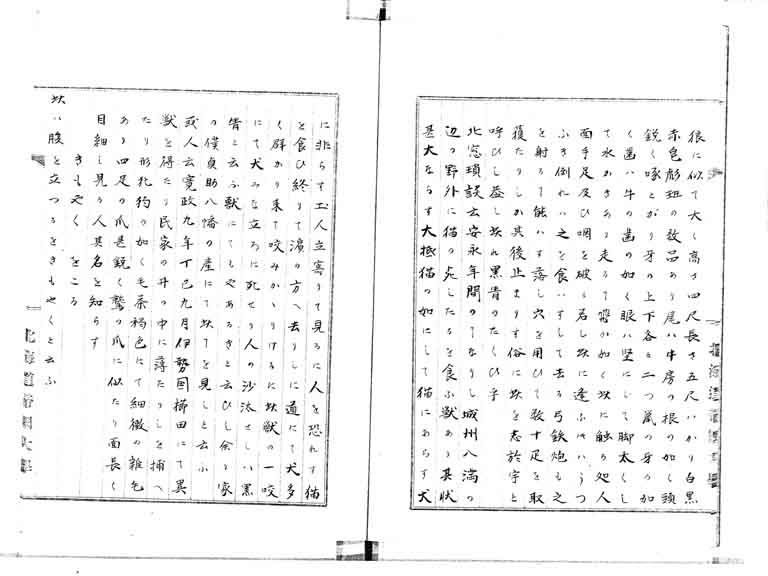 狼に似て大く高さ四尺長さ五尺いかり白黒
赤色彪班の数品あり尾ハ牛房の根の如く頭
鋭く啄とがり牙の上下各と二つ鼠の牙の如
く歯ハ牛の歯の如く眼ハ竪にして脚太くし
て水かきあり走るて飛か如く妖に触る処人
面手足及ひ咽を破る若し妖に逢ふ
ふき倒れハ之を食いすして去る弓鉄炮も之
を射るて能ハす落し穴を用ひて数十足を取
獲たりしか其後止まりす俗に妖を志於宇と
呼ひし益し妖れ黒青のたくひ乎
北窓瑣談云安永年間のてなりし城州八満の
辺の野外に猫の死したるを食ふ獣あり其状
甚大ならす大抵猫の如にして猫にあらす犬
に非らす土人立寄りて見るに人を恐れす猫
を食ひ終りて濱の方へ去りしに道にて犬多
く群かり来て咬みかゝりけるに妖獣の一咬
にて犬みな立ろに死せり人の沙汰せしハ黒
眚と云ふ獣にてもやあるきと云ひし余る家
の僕貞助八幡の産にて妖てを見しと云ふ
或人云寛政九年丁巳九月伊勢国櫛田にて異
獣を得たり民家の井の中に落たりしを捕へ
たり形牝狗の如く毛茶褐色にて細微の雑色
あり四足の爪甚鋭く鷲の爪に似たり面長く
目細し見る人其名を知らす
きもやく をこる
妖ハ腹を立つるをきもやくと云ふ